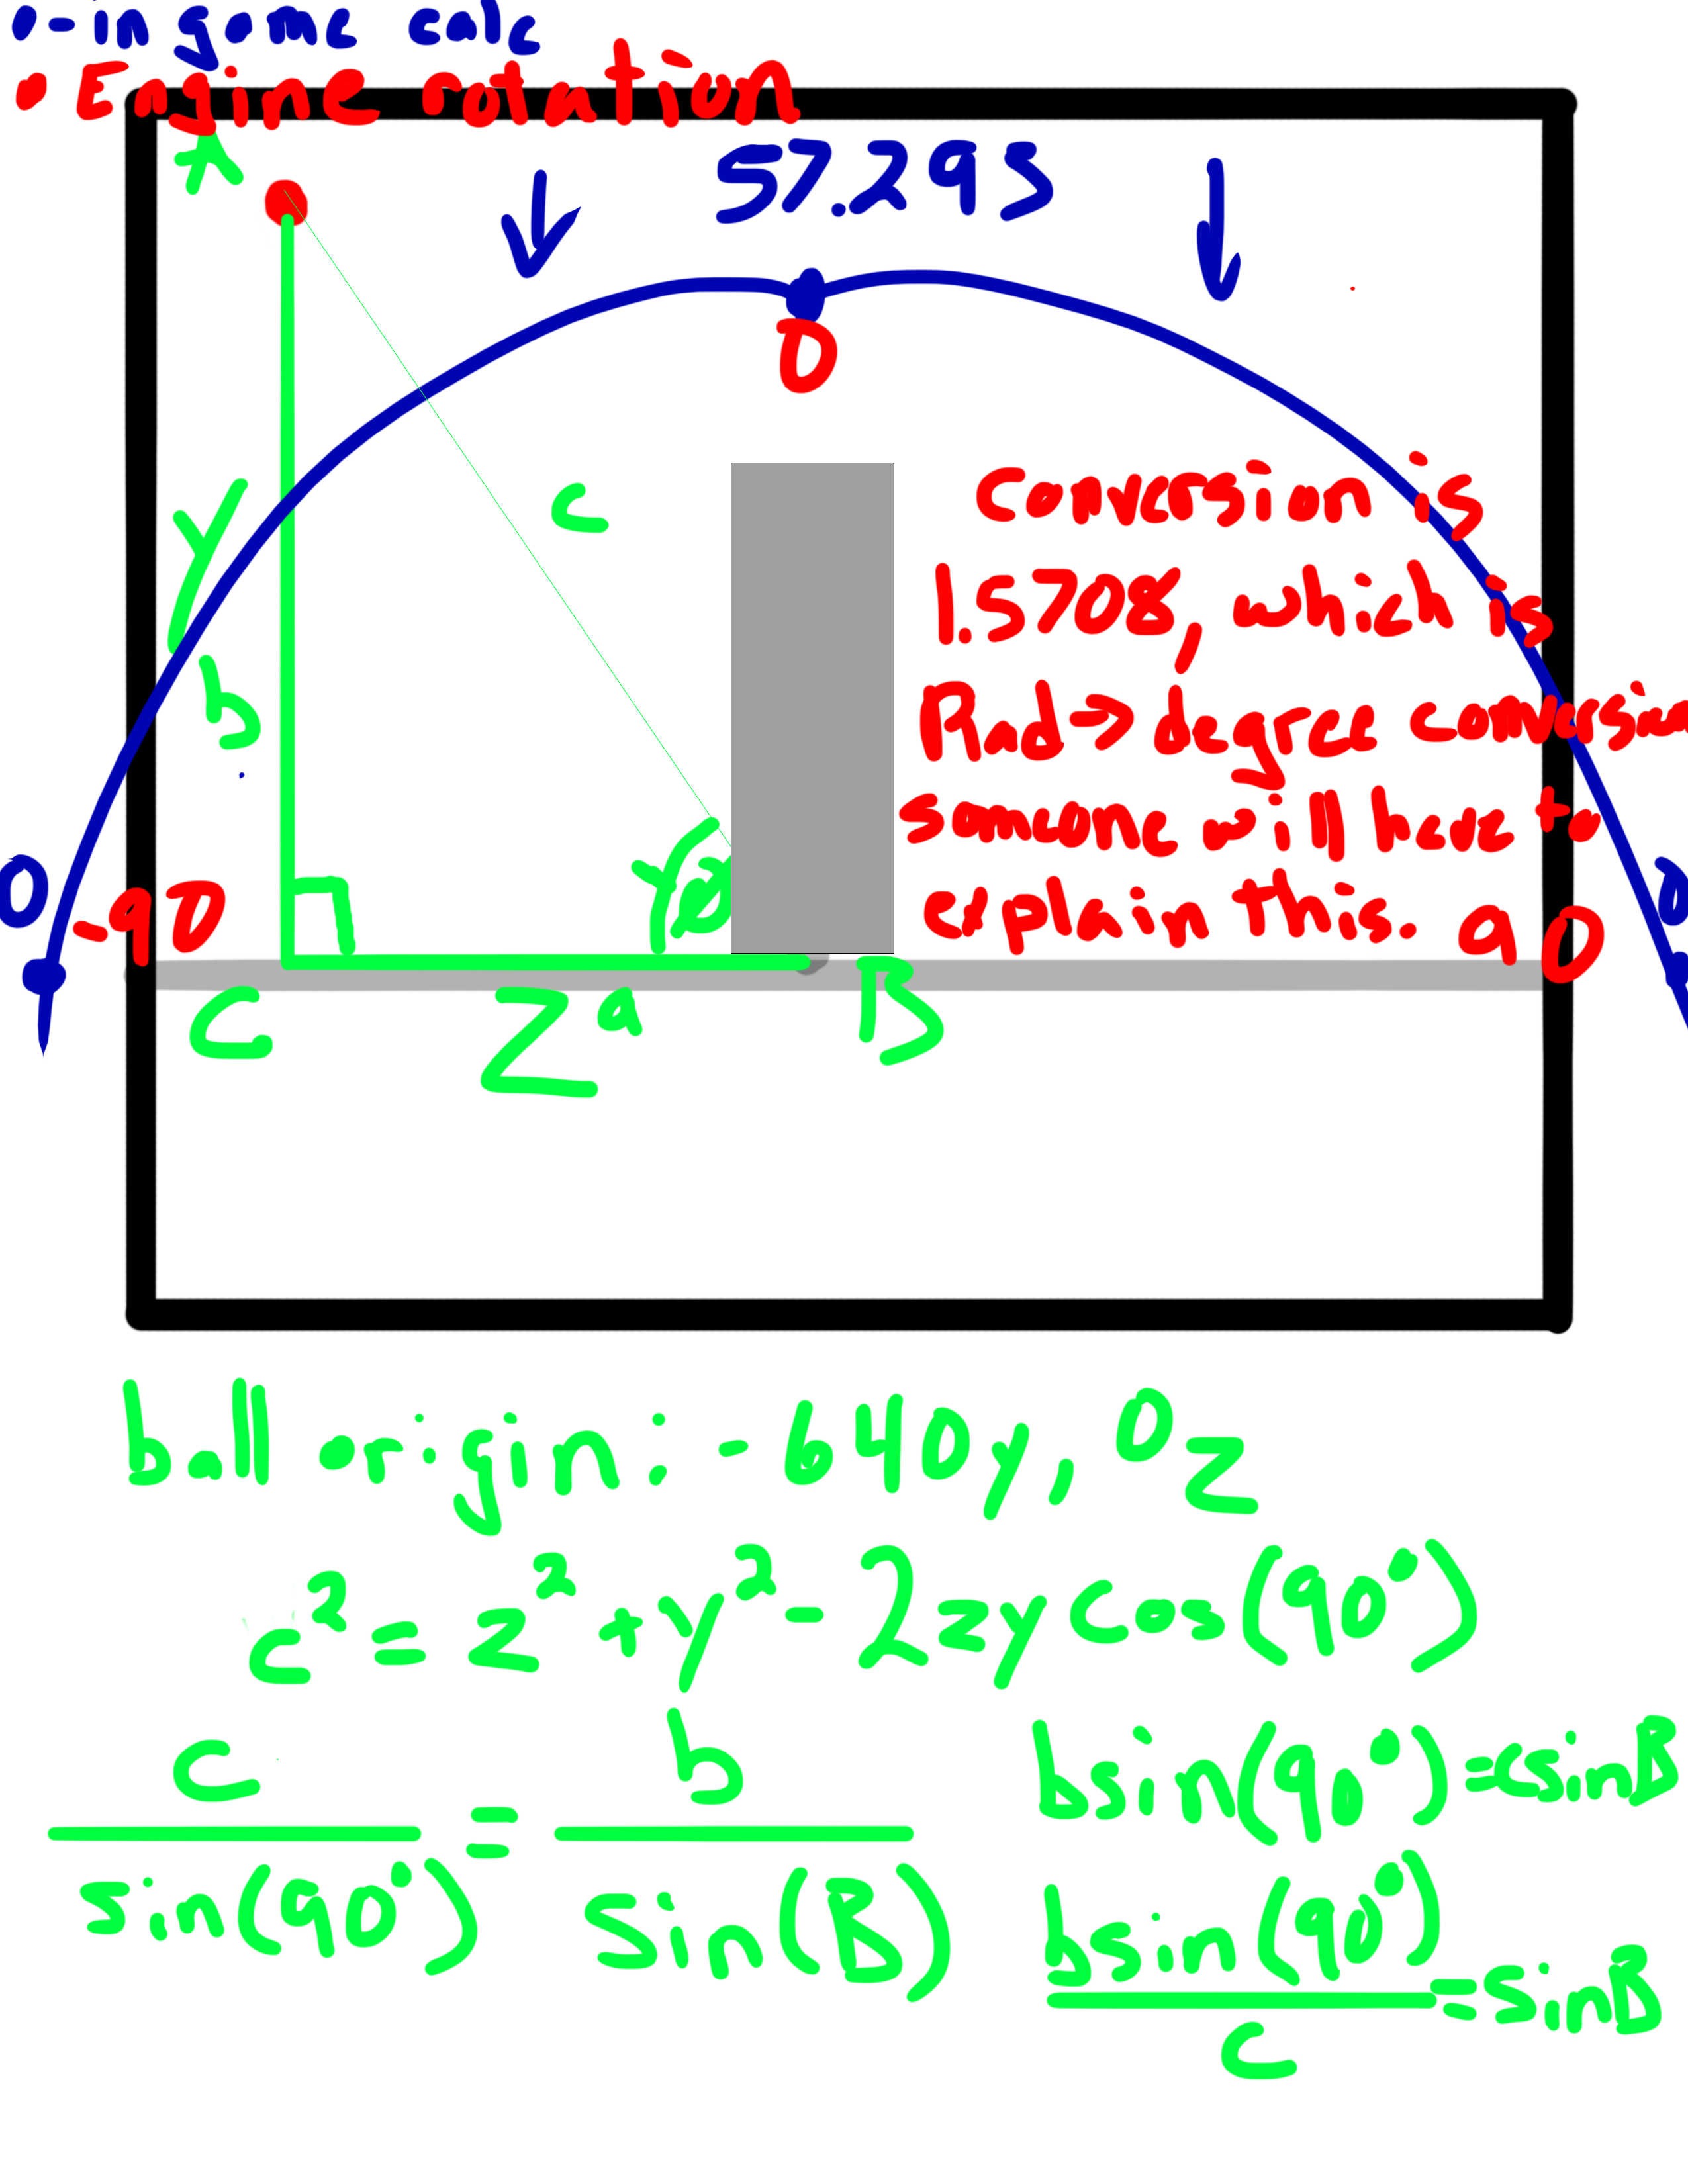 0-in game calc
• Engine rotation
A
57.295
0
y
c
conversion is
1.5708, which is
b
Rad->degree conversion
someone will have to
explain this.
0
-90
θ
0
90
C
Z
a
B
ball origin: -640y, 0z
c² = z² + y² - 2zy cos(90°)
c
b
=
sin(90°)
sin(B)
bsin(90°)=csinB
bsin(90°)
=sinB
c